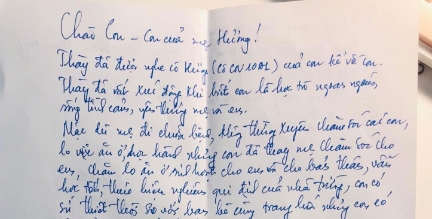 Chào Con - Con của mẹ Hường!
Thầy đã được nghe cô Hường (cô CN 10A1) của con kể về con.
Thầy đã rất xúc động khi biết con là học trò ngoan ngoãn,
sống tình cảm, yêu thương mẹ và em.
Mặc dù mẹ đi chữa bệnh, không thường xuyên chăm sóc cái con,
lo việc ăn ở, học hành nhưng con đã thay mẹ chăm sóc cho
em, chăm lo ăn ở sinh hoạt cho em và cho bản thân, vẫn
học tốt, thực hiện nghiêm qui định của nhà trường, con có
sự thiệt thòi so với bạn bè cùng trang lứa nhưng con có